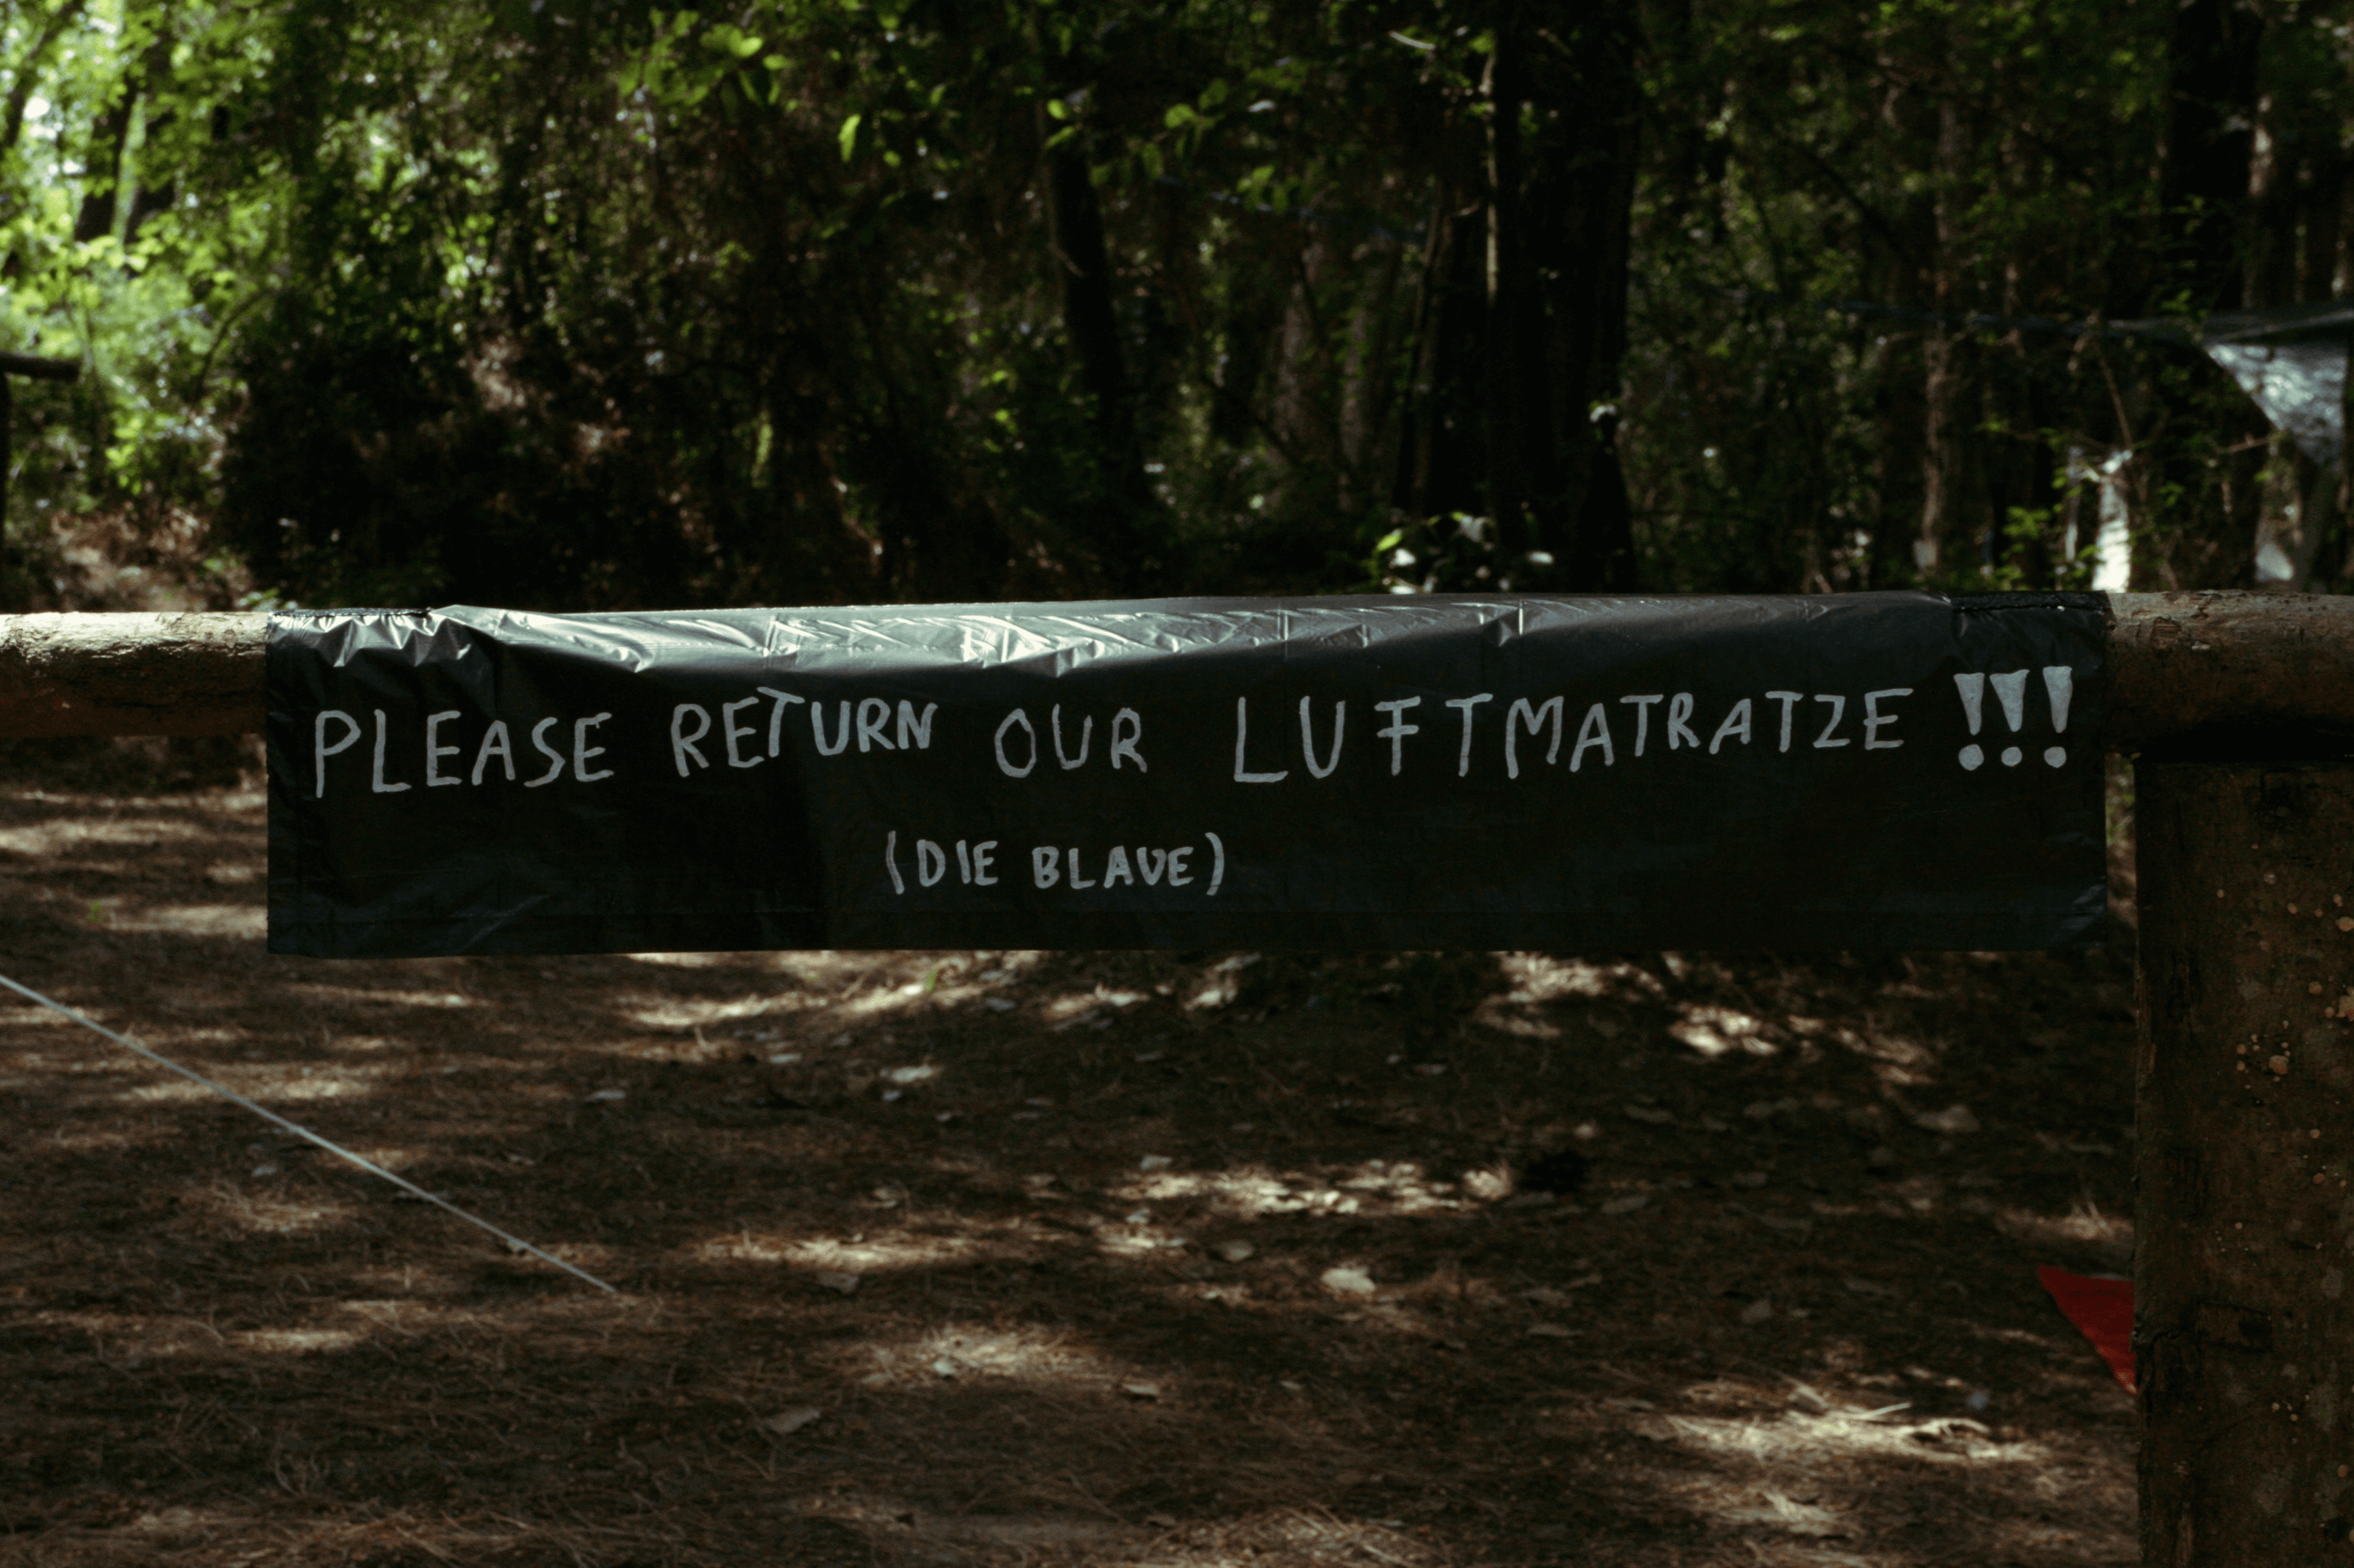 PLEASE RETURN OUR LUFTMATRATZE !!!
(DIE BLAUE)